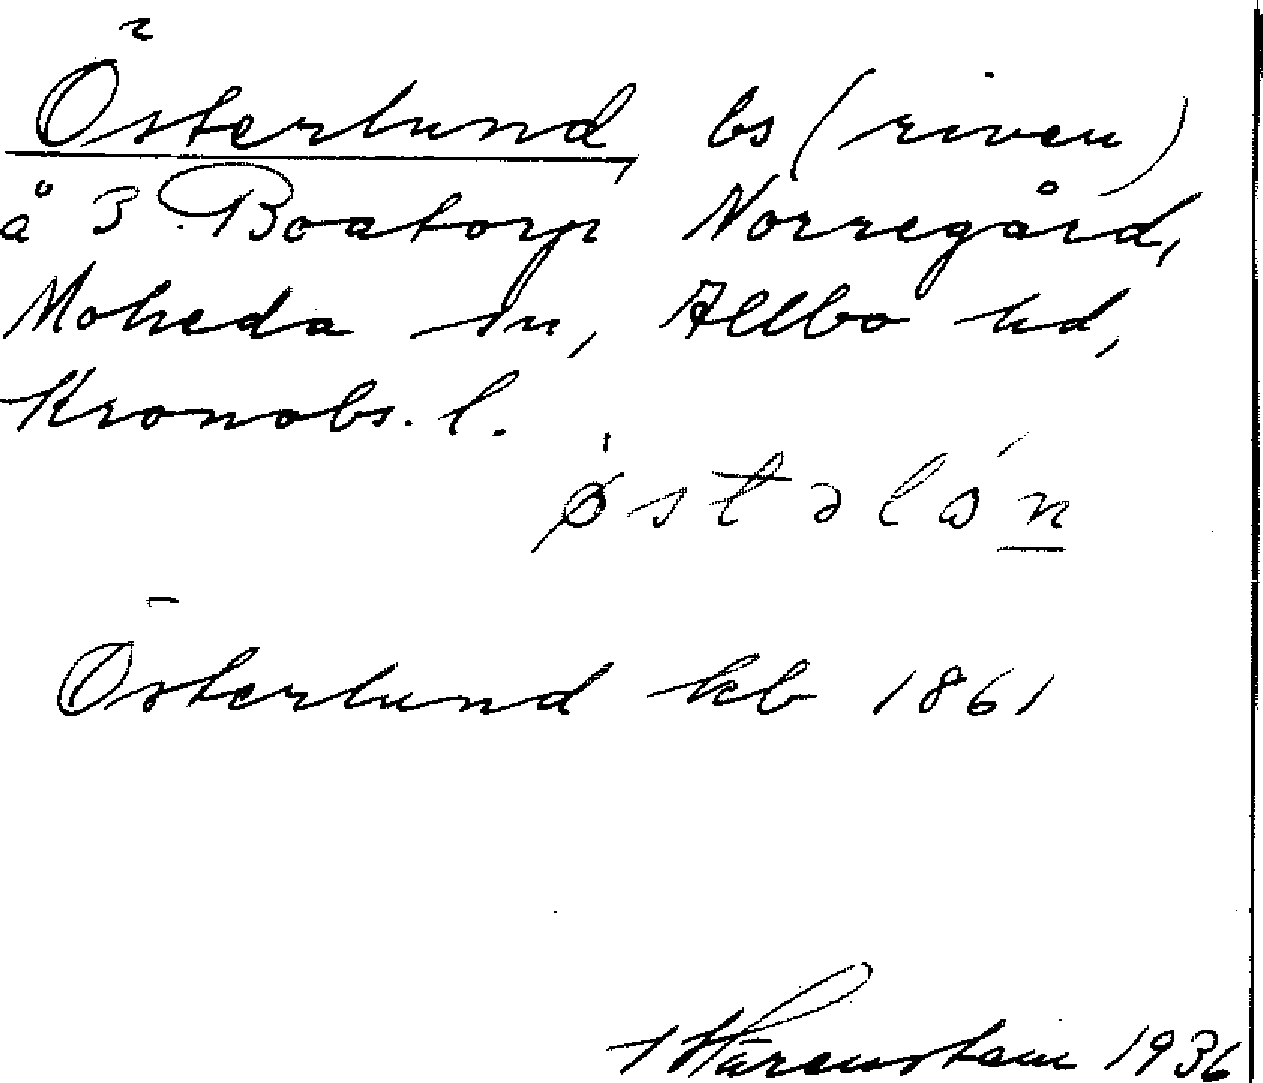 Österlund, bs (riven)
å 3 Boatorp Norregård,
Moheda sn, Allbo hd,
Kronobs. l.
ǿstəlón
Österlund kb 1861
1936